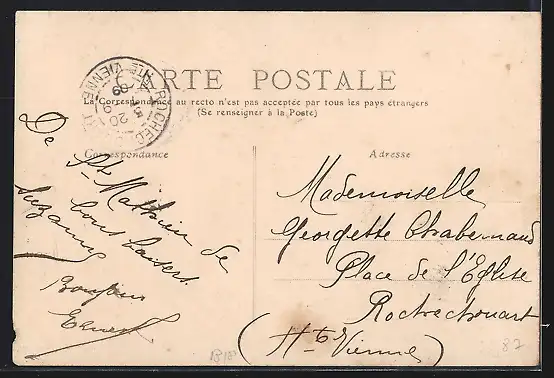 CARTE POSTALE
La Correspondance au recto n'est pas acceptée par tous les pays étrangers
(Se renseigner à la Poste)
Correspondance
Adresse
De St Mathieu de
bons baisers.
Suzanne
Bonjour
Ernest
Mademoiselle
Georgette Chabernaud
Place de l'Eglise
Rochechouart
(Hte Vienne)
ROCHECHOUART
HTE VIENNE
20
5 - 9
09
87